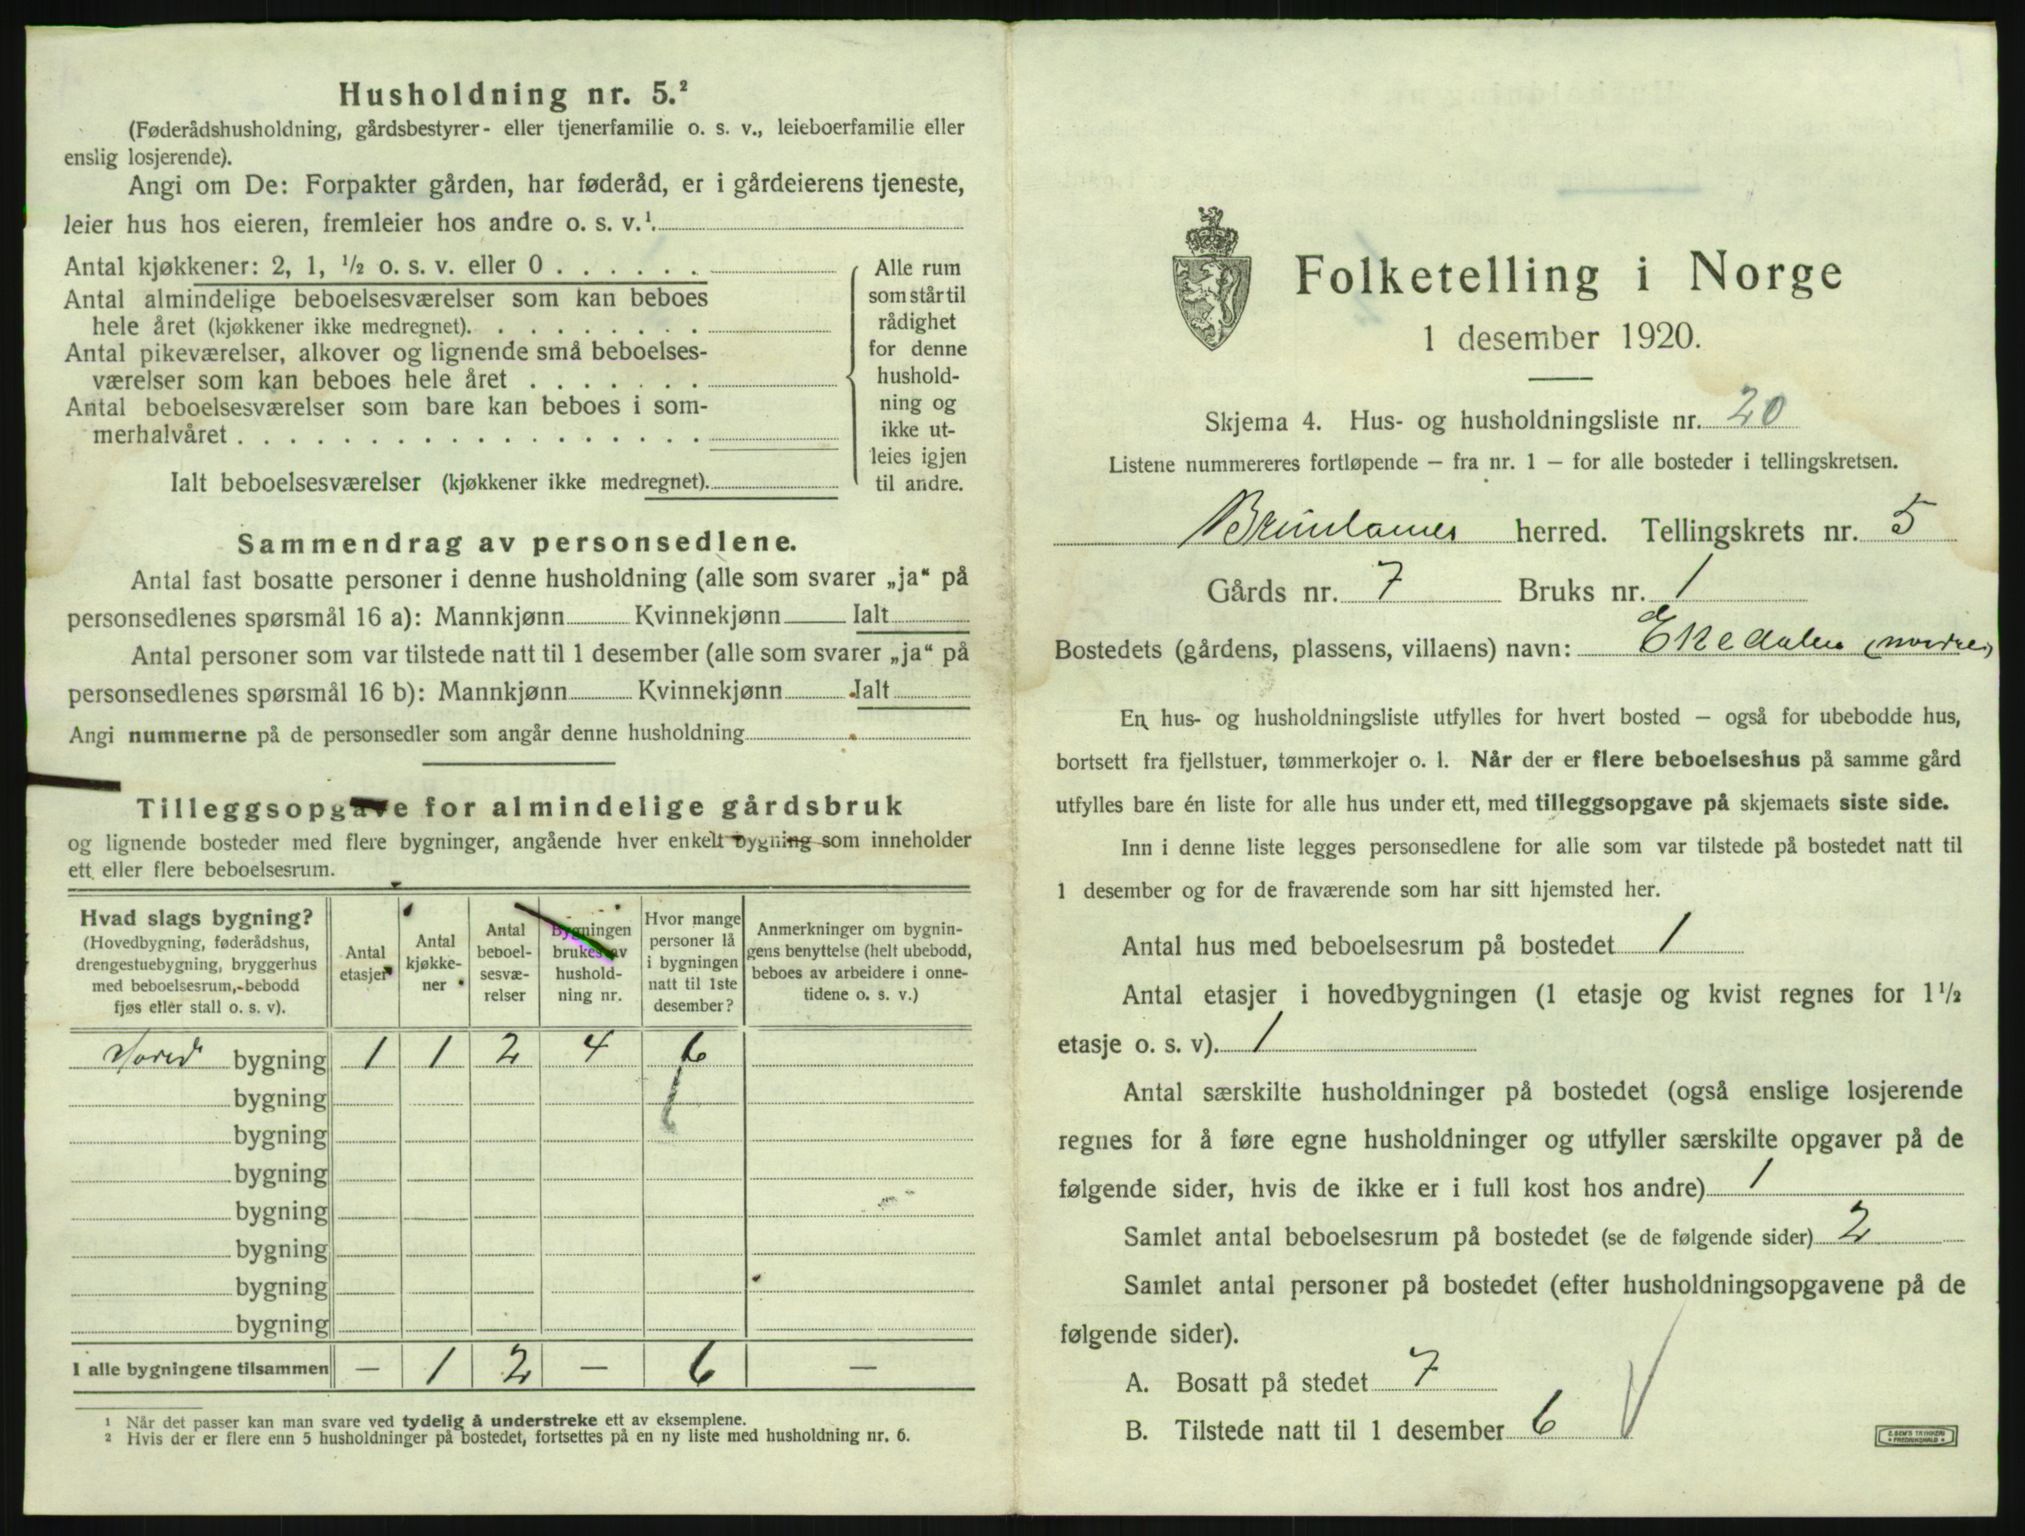 Husholdning nr. 5.²
(Føderådshusholdning, gårdsbestyrer- eller tjenerfamilie o. s. v., leieboerfamilie eller
enslig losjerende).
Angi om De: Forpakter gården, har føderåd, er i gårdeierens tjeneste,
leier hus hos eieren, fremleier hos andre o. s. v.¹.
Antal kjøkkener: 2, 1, ½ o. s. v. eller 0 . . . . . .
Antal almindelige beboelsesværelser som kan beboes
hele året (kjøkkener ikke medregnet). . . . . . . . .
Antal pikeværelser, alkover og lignende små beboelses-
værelser som kan beboes hele året . . . . . . .
Antal beboelsesværelser som bare kan beboes i som-
merhalvåret . . . . . . . . . . . . . . . . . .
Ialt beboelsesværelser (kjøkkener ikke medregnet).
Alle rum
som står til
rådighet
for denne
hushold-
ning og
ikke ut-
leies igjen
til andre.
Sammendrag av personsedlene.
Antal fast bosatte personer i denne husholdning (alle som svarer „ja“ på
personsedlenes spørsmål 16 a): Mannkjønn Kvinnekjønn Ialt
Antal personer som var tilstede natt til 1 desember (alle som svarer „ja“ på
personsedlenes spørsmål 16 b): Mannkjønn Kvinnekjønn Ialt
Angi nummerne på de personsedler som angår denne husholdning
Tilleggsopgave for almindelige gårdsbruk
og lignende bosteder med flere bygninger, angående hver enkelt bygning som inneholder
ett eller flere beboelsesrum.
Hvad slags bygning?
(Hovedbygning, føderådshus,
drengestuebygning, bryggerhus
med beboelsesrum, bebodd
fjøs eller stall o. s. v).
Antal
etasjer
Antal
kjøkke-
ner
Antal
beboel-
sesvæ-
relser
Bygningen
brukes av
hushold-
ning nr.
Hvor mange
personer lå
i bygningen
natt til 1ste
desember?
Anmerkninger om bygnin-
gens benyttelse (helt ubebodd,
beboes av arbeidere i onne-
tidene o. s. v.)
Hoved bygning 1 1 2 4 6
bygning
bygning
bygning
bygning
bygning
bygning
bygning
I alle bygningene tilsammen — 1 2 — 6 —
¹ Når det passer kan man svare ved tydelig å understreke ett av eksemplene.
² Hvis der er flere enn 5 husholdninger på bostedet, fortsettes på en ny liste med husholdning nr. 6.
Folketelling i Norge
1 desember 1920.
Skjema 4. Hus- og husholdningsliste nr. 20
Listene nummereres fortløpende – fra nr. 1 – for alle bosteder i tellingskretsen.
Brunlanes herred. Tellingskrets nr. 5
Gårds nr. 7 Bruks nr. 1
Bostedets (gårdens, plassens, villaens) navn: Ekedalen (nordre)
En hus- og husholdningsliste utfylles for hvert bosted – også for ubebodde hus,
bortsett fra fjellstuer, tømmerkojer o. l. Når der er flere beboelseshus på samme gård
utfylles bare én liste for alle hus under ett, med tilleggsopgave på skjemaets siste side.
Inn i denne liste legges personsedlene for alle som var tilstede på bostedet natt til
1 desember og for de fraværende som har sitt hjemsted her.
Antal hus med beboelsesrum på bostedet 1
Antal etasjer i hovedbygningen (1 etasje og kvist regnes for 1½
etasje o. s. v). 1
Antal særskilte husholdninger på bostedet (også enslige losjerende
regnes for å føre egne husholdninger og utfyller særskilte opgaver på de
følgende sider, hvis de ikke er i full kost hos andre) 1
Samlet antal beboelsesrum på bostedet (se de følgende sider) 2
Samlet antal personer på bostedet (efter husholdningsopgavene på de
følgende sider).
A. Bosatt på stedet 7
B. Tilstede natt til 1 desember 6